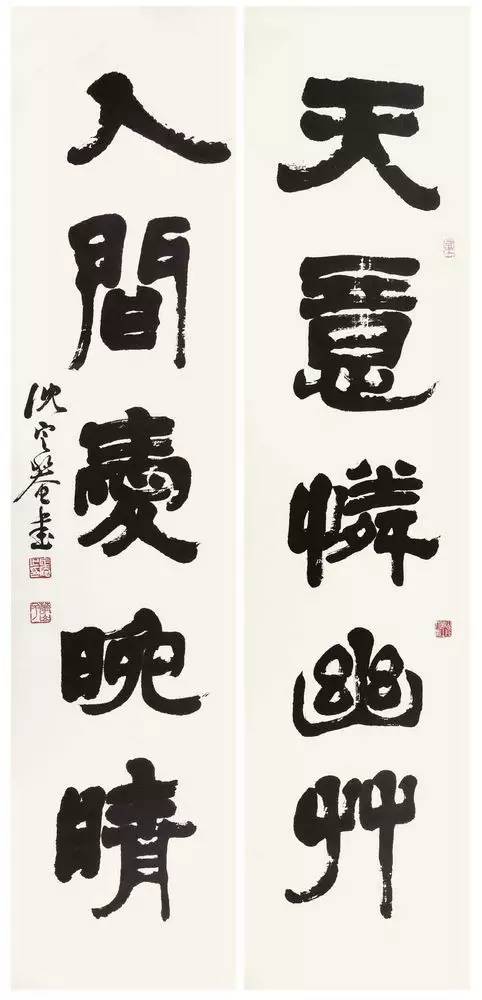 天意憐幽艸
人間愛晚晴
沈定菴書